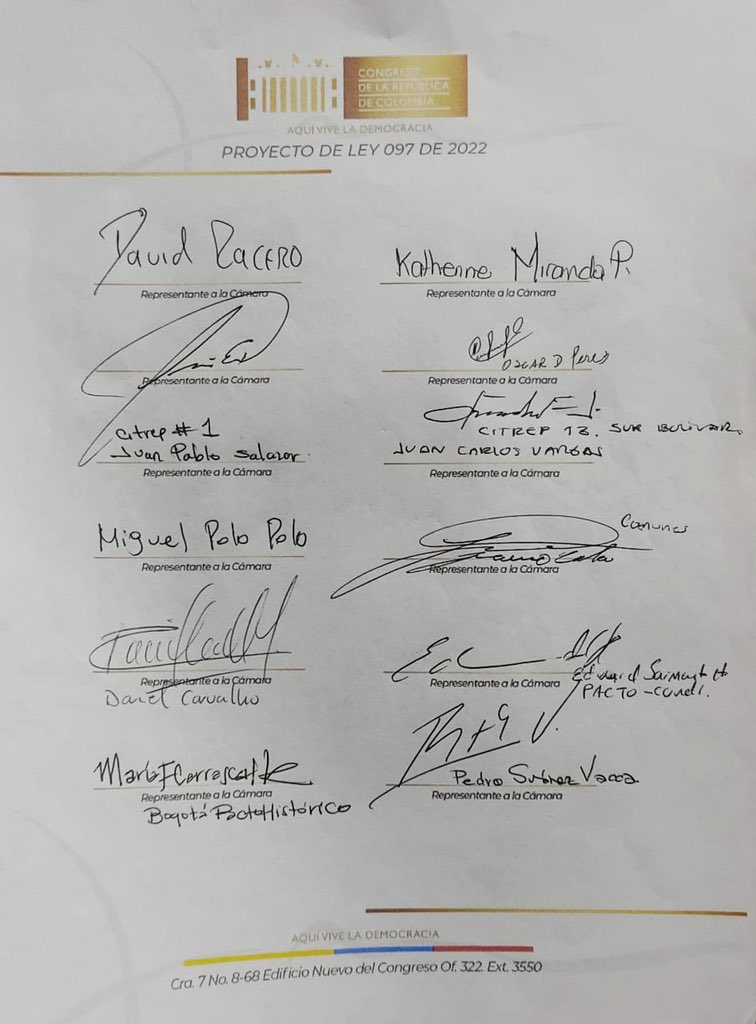 CONGRESO
DE LA REPÚBLICA
DE COLOMBIA
AQUÍ VIVE LA DEMOCRACIA
PROYECTO DE LEY 097 DE 2022
David RACERO
Representante a la Cámara
Katherine Miranda P.
Representante a la Cámara
Representante a la Cámara
OSCAR D Perez
Representante a la Cámara
Citrep # 1
Juan Pablo Salazar.
Representante a la Cámara
CITREP 13. SUR BOLIVAR.
JUAN CARLOS VARGAS
Representante a la Cámara
Miguel Polo Polo
Representante a la Cámara
Comunes
Representante a la Cámara
Representante a la Cámara
Daniel Carvalho
Representante a la Cámara
Eduard Sarmiento H
PACTO - Cundi.
María F Carrascal
Representante a la Cámara
Bogotá Pacto Histórico
Pedro Suárez Vacca
Representante a la Cámara
AQUÍ VIVE LA DEMOCRACIA
Cra. 7 No. 8-68 Edificio Nuevo del Congreso Of. 322. Ext. 3550